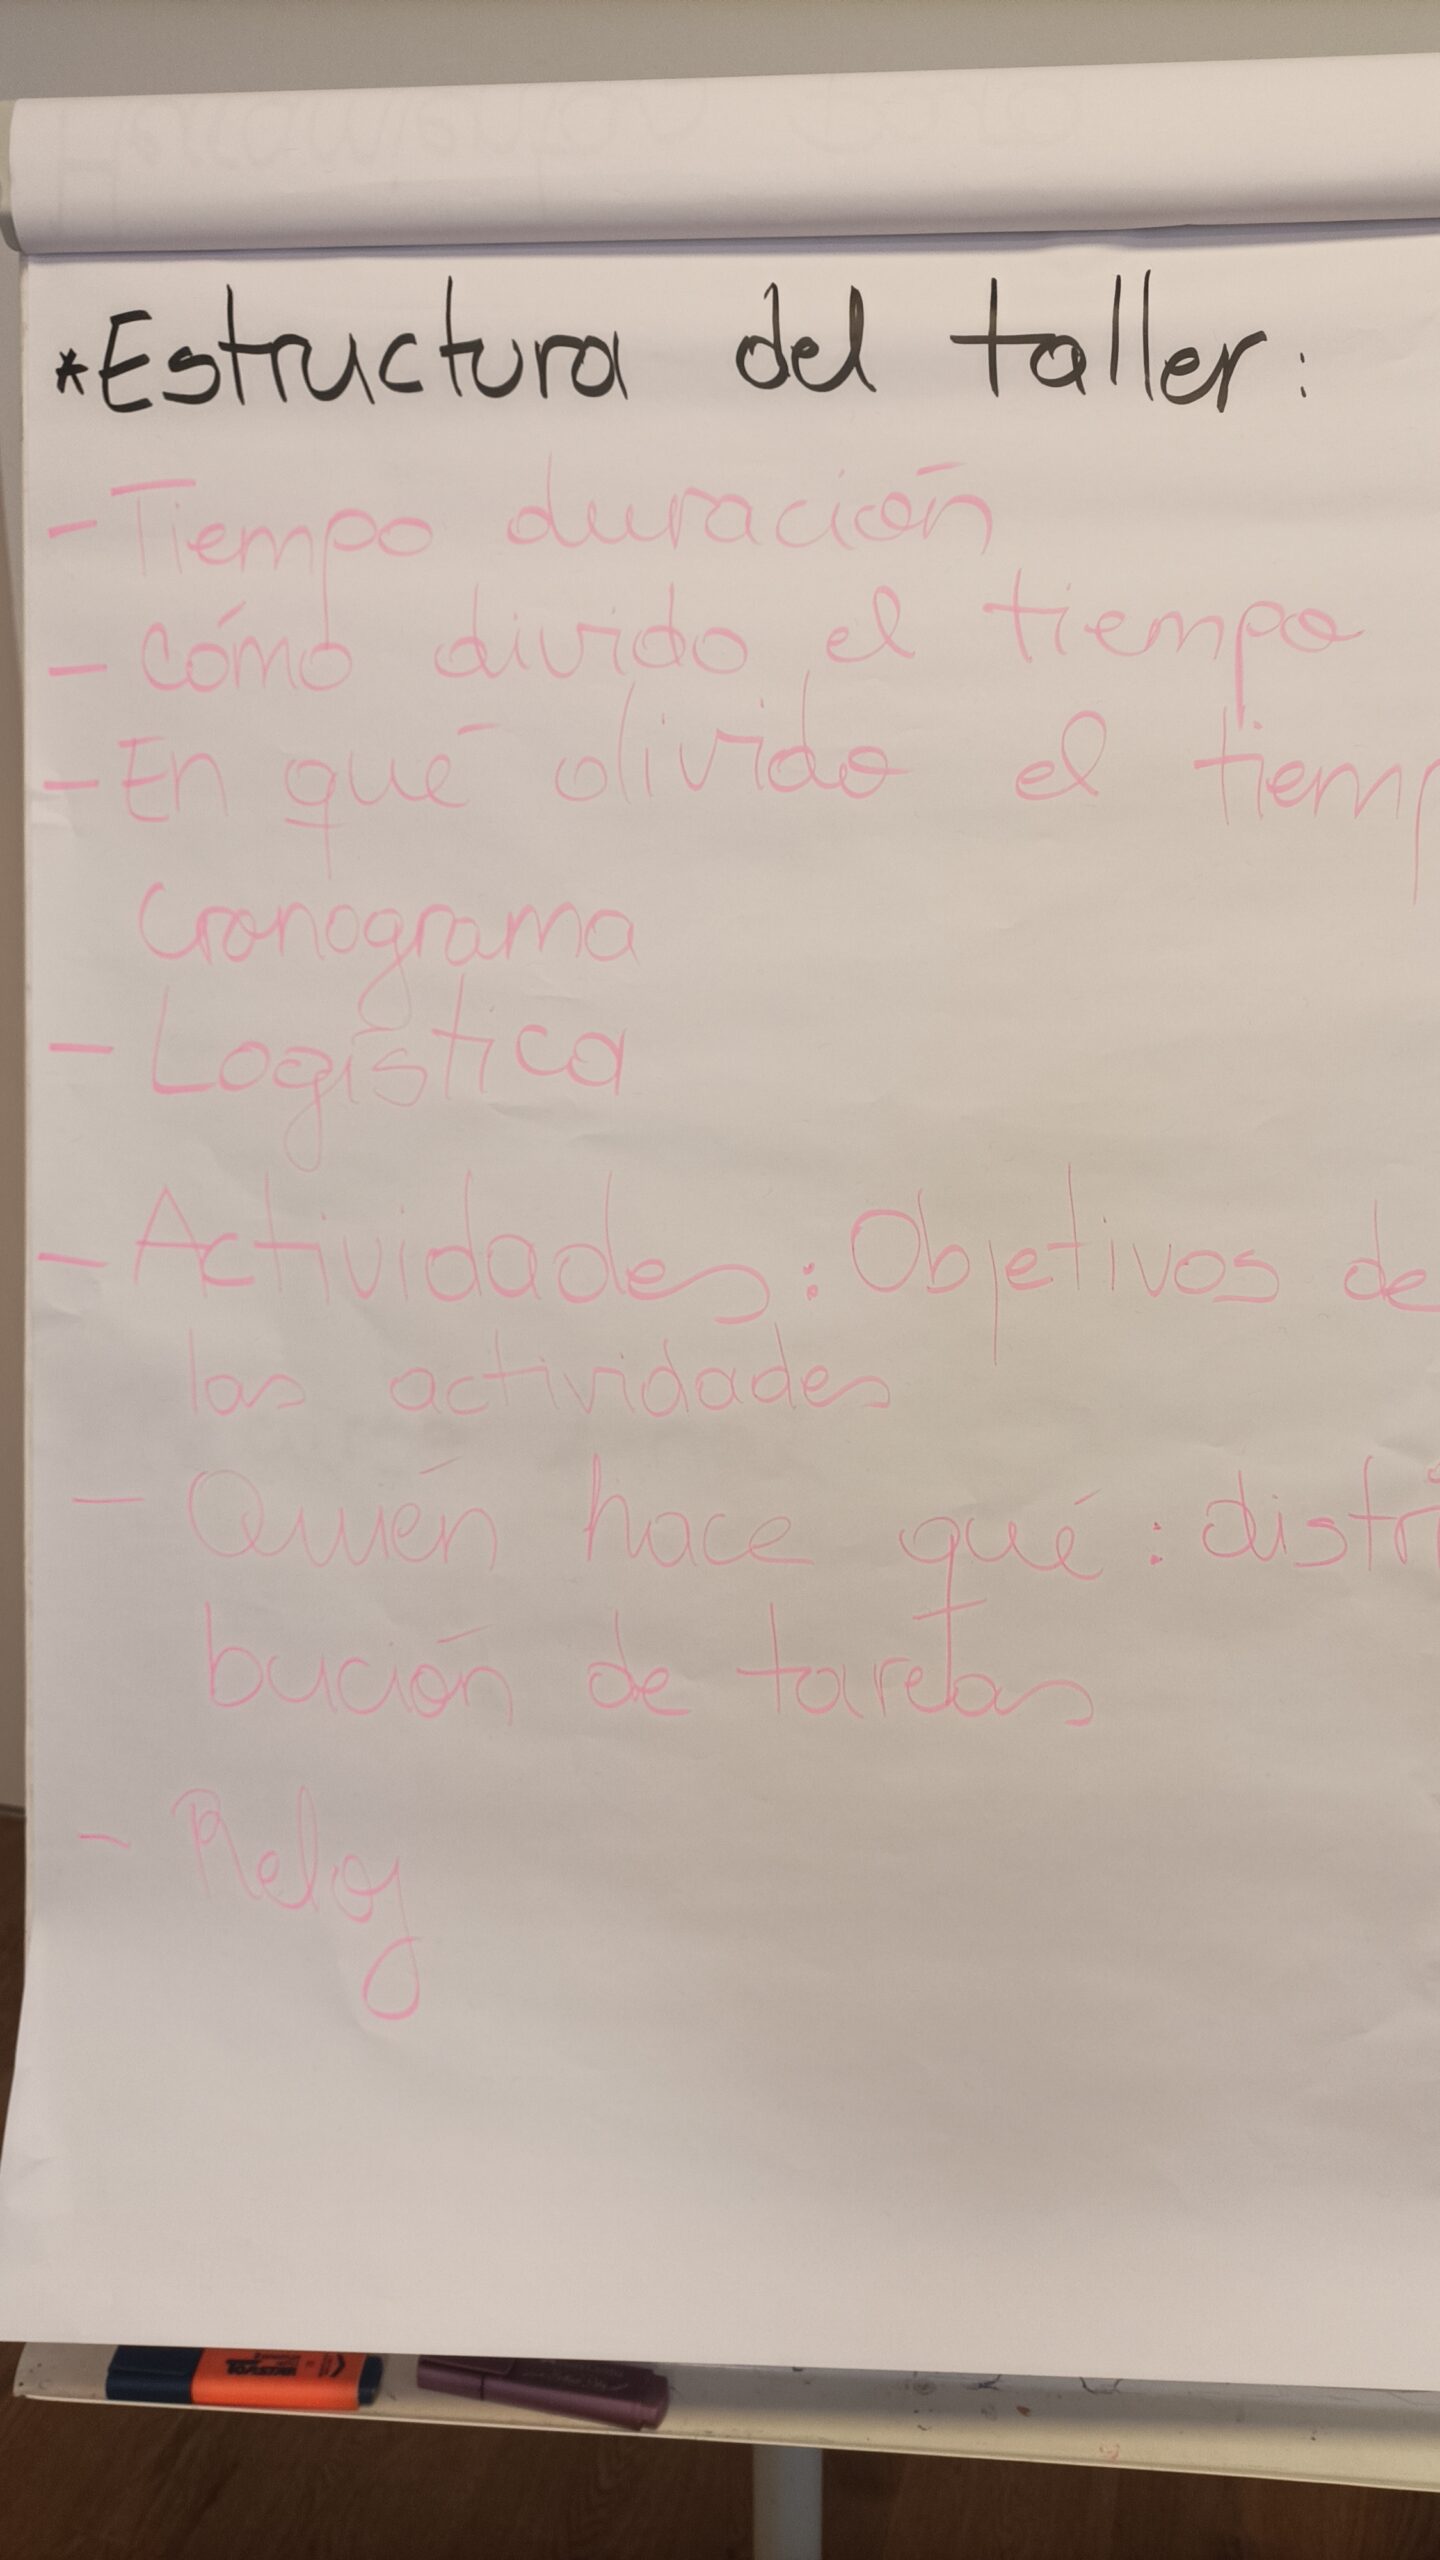 *Estructura del taller:
- Tiempo duración
- Cómo divido el tiempo
- En qué divido el tiemp
Cronograma
- Logística
- Actividades: Objetivos de
las actividades
- Quién hace qué: distri
bución de tareas
- Reloj